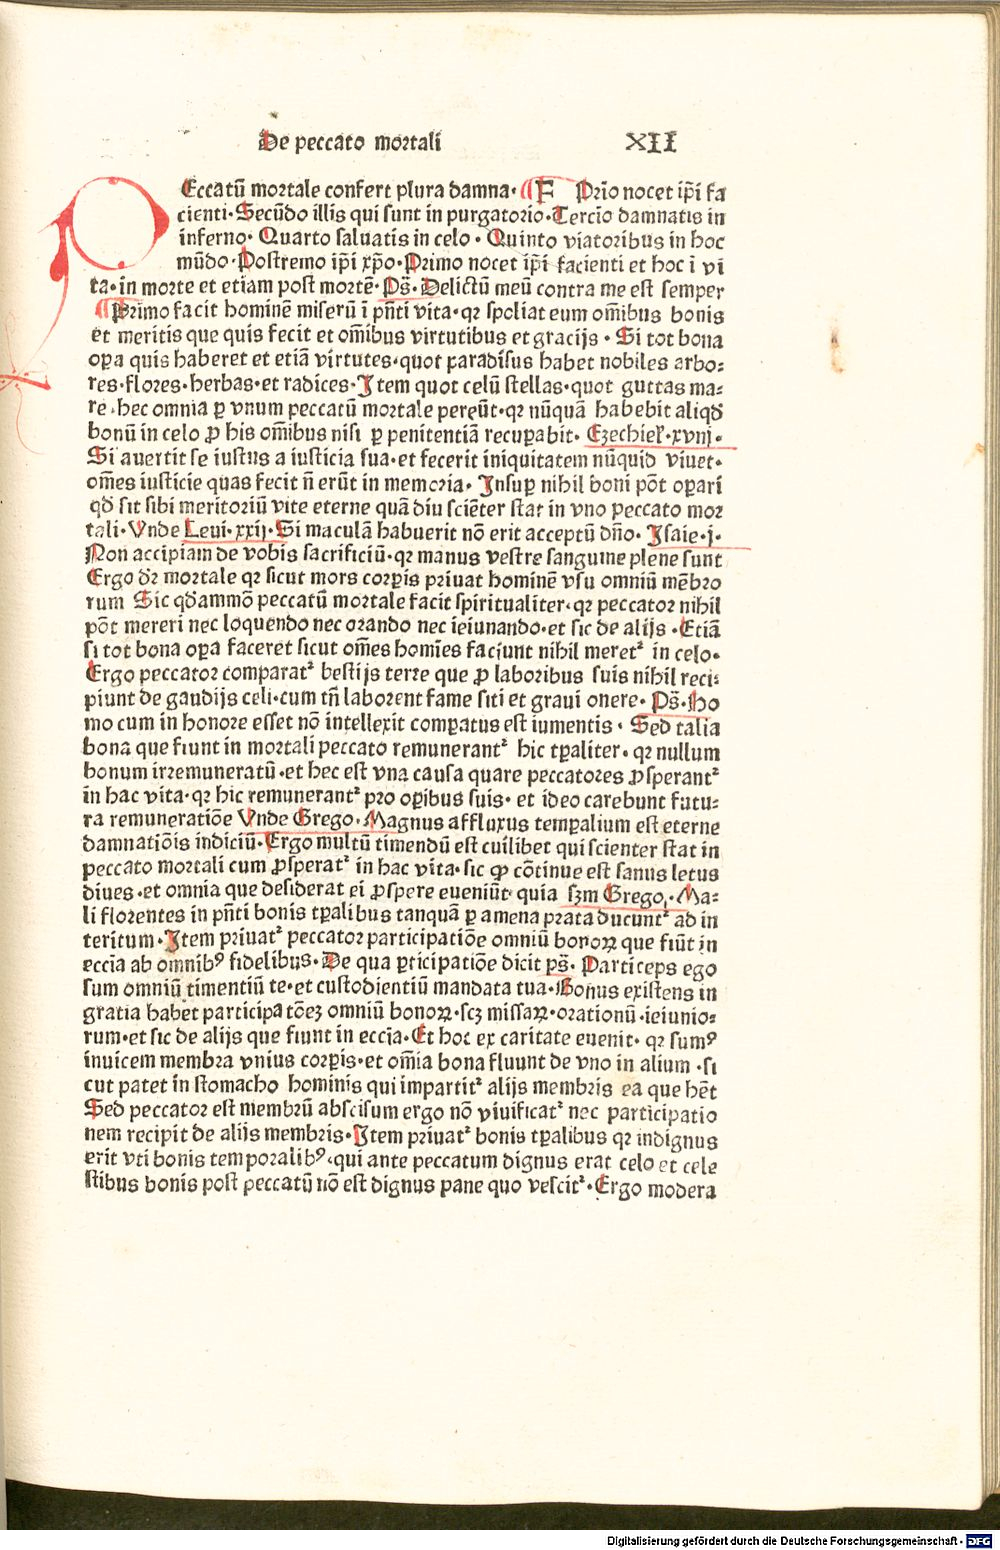 De peccato mortali XII
PEccatū mortale confert plura damna· F Prīo nocet ip̄i fa
cienti·Secūdo illis qui sunt in purgatorio·Tercīo damnatis in
inferno· Quarto saluatis in celo· Quinto viatoribus in hoc
mūdo·Postremo ip̄i xp̄o·Primo nocet ip̄i facienti et hoc ī vi
ta·in morte et etiam post mortē·Ps̄·Delictū meū contra me est semper
Primo facit hominē miserū ī p̄nti vita·qꝛ spoliat eum om̄ibus bonis
et meritis que quis fecit et om̄ibus virtutibus et gracijs·Si tot bona
oꝑa quis haberet et etiā virtutes·quot ꝑaradisus habet nobiles arbo⸗
res·flores·herbas·et radices·Item quot celū stellas·quot guttas ma⸗
re·hec omnia ꝑ vnum peccatū mortale pereūt·qꝛ nūquā habebit aliqd̄
bonū in celo ꝓ his om̄ibus nisi ꝑ penitentiā recuꝑabit· Ezechiel·xvnj·
Si auertit se iustus a iusticia sua·et fecerit iniquitatem nūquid viuet·
om̄es iusticie quas fecit n̄ erūt in memoria·Insuꝑ nihil boni pōt oꝑari
qd̄ sit sibi meritoriū vite eterne quā diu sciēter stat in vno peccato mor
tali·Vnde Leui·xxij·Si maculā habuerit nō erit acceptū dn̄o·Isaie·j·
Non accipiam de vobis sacrificiū·qꝛ manus vestre sanguine plene sunt
Ergo dꝛ̄ mortale qꝛ sicut mors corꝑis priuat hominē vsu omniū mēbro
rum Sic qd̄ammō peccatū mortale facit spiritualiter·qꝛ peccator nihil
pōt mereri nec loquendo nec orando nec ieiunando·et sic de alijs·Etiā
si tot bona oꝑa faceret sicut om̄es homīes faciunt nihil meretᷣ in celo·
Ergo peccator comparatᷣ bestijs terre que ꝓ laboribus suis nihil reci⸗
piunt de gaudijs celi·cum tn̄ laborent fame siti et graui onere·Ps̄·Ho
mo cum in honore esset nō intellexit comꝑatus est iumentis·Sed talia
bona que fiunt in mortali peccato remunerantᷣ hic tꝑaliter·qꝛ nullum
bonum irremuneratū·et hec est vna causa quare peccatores ꝓsperantᷣ
in hac vita·qꝛ hic remunerantᷣ pro oꝑibus suis·et ideo carebunt futu⸗
ra remuneratiōe Vnde Grego·Magnus affluxus temꝑalium est eterne
damnatiōis indiciū·Ergo multū timendū est cuilibet qui scienter stat in
peccato mortali cum ꝓsperatᷣ in hac vita·sic ꝙ cōtinue est sanus letus
diues·et omnia que desiderat ei ꝓspere eueniūt·quia scꝫm Grego·Ma⸗
li florentes in p̄nti bonis tꝑalibus tanquā ꝑ amena prata ducuntᷣ ad in
teritum·Item priuatᷣ peccator participatiōe omniū bonoꝝ que fiūt in
eccīa ab omnibꝰ fidelibus·De qua ꝑticipatiōe dicit ps̄·Particeps ego
sum omniū timentiū te·et custodientiū mandata tua·Bonus existens in
gratia habet participatōeꝫ omniū bonoꝝ·scꝫ missaꝝ·orationū·ieiunio⸗
rum·et sic de alijs que fiunt in eccīa·Et hoc ex caritate euenit·qꝛ sumꝰ
inuicem membra vnius corꝑis·et om̄ia bona fluunt de vno in alium·si
cut patet in stomacho hominis qui impartitᷣ alijs membris ea que hēt
Sed peccator est membrū abscisum ergo nō viuificatᷣ nec participatio
nem recipit de alijs membris·Item priuatᷣ bonis tꝑalibus qꝛ indignus
erit vti bonis temporalibꝰ·qui ante peccatum dignus erat celo et cele
stibus bonis post peccatū nō est dignus pane quo vescitᷣ·Ergo modera
Digitalisierung gefördert durch die Deutsche Forschungsgemeinschaft · DFG